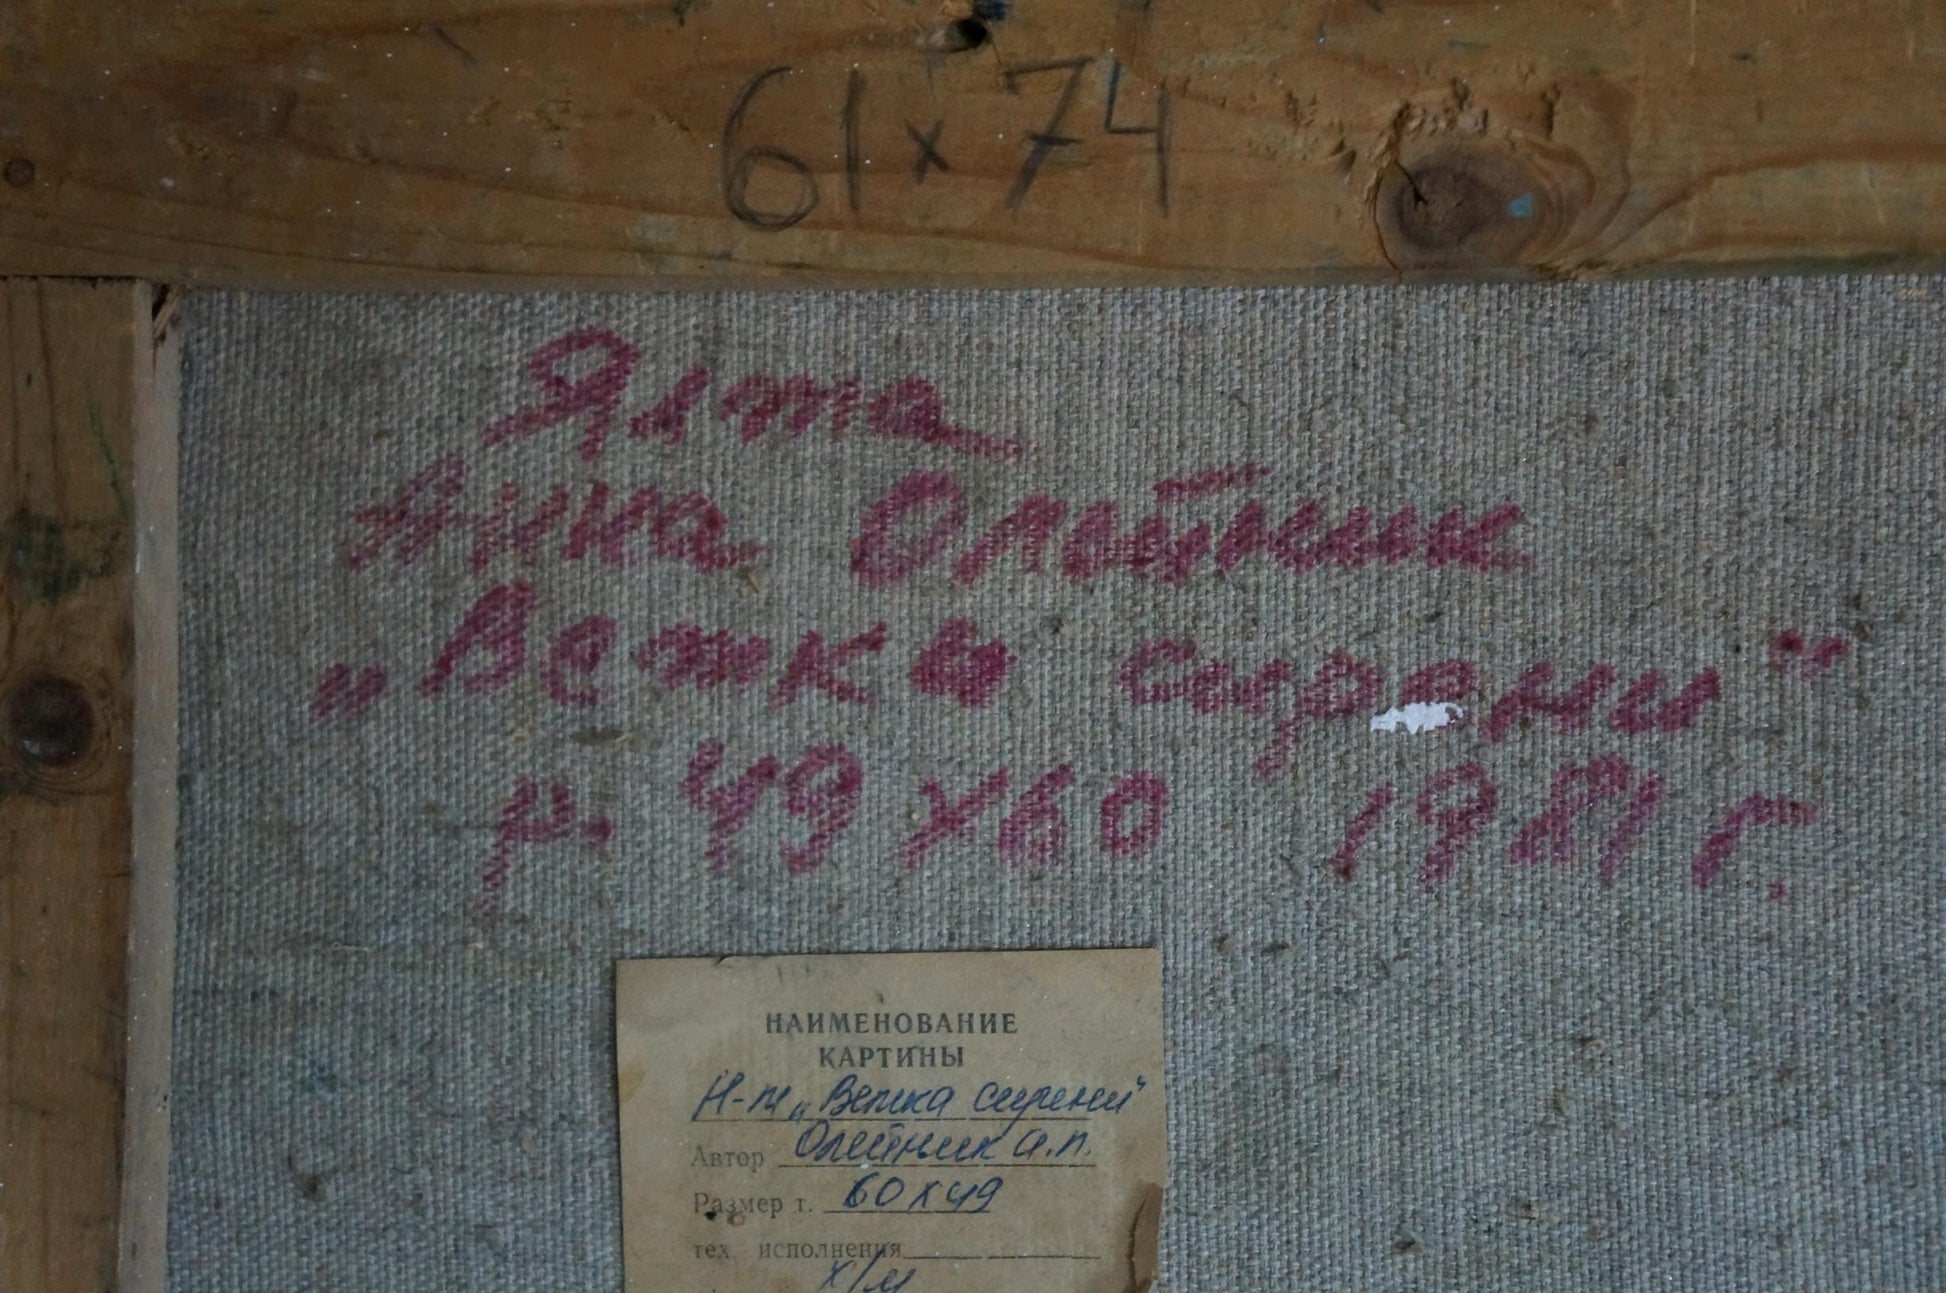 61 x 74
Ялта
Анна Олейник
„Ветки сирени"
р. 49 х 60 1981 г.
НАИМЕНОВАНИЕ
КАРТИНЫ
Н-т „Ветка сирени"
Автор Олейник А.П.
Размер т. 60 х 49
тех. исполнения
х/м